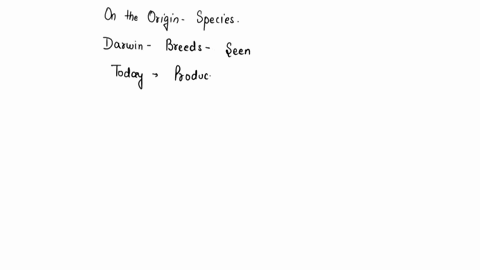 On the Origin- Species.
Darwin- Breeds- Seen
Today → Produc